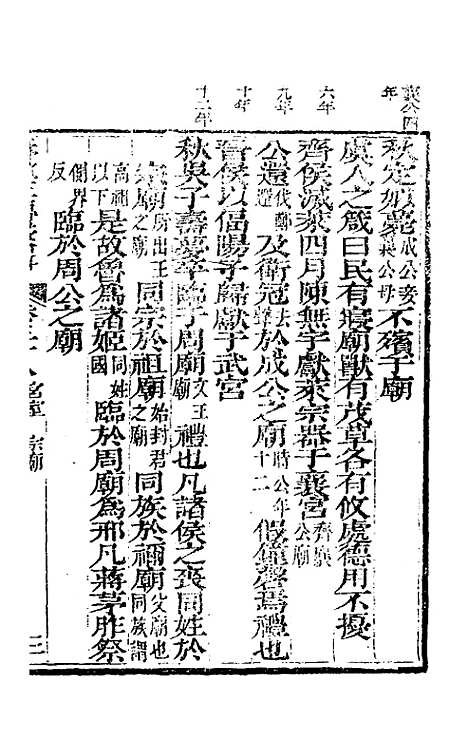 襄公四年
秋定姒薨成公妾襄公母不殯于廟
虞人之箴曰民有寢廟獸有茂草各有攸處德用不擾
六年
齊侯滅萊四月陳無宇獻萊宗器于襄宮齊襄公廟
九年
公還伐鄭還及衛冠于成公之廟假鐘磬焉禮也
十年
晉侯以偪陽子歸獻于武宮
十二年
秋吳子壽夢卒臨于周廟文王廟禮也凡諸侯之喪同姓於
宗廟所出王之廟同宗於祖廟始封君之廟同族於禰廟父廟也同族謂
高祖以下是故魯為諸姬同姓國臨於周廟為邢凡蔣茅胙祭
側界反臨於周公之廟
宗廟
三